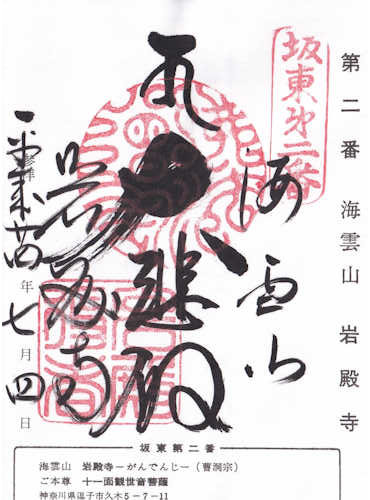 第二番 海雲山 岩殿寺
坂東㐧二番
海雲山
大悲殿
岩殿寺
平成廿四年七月四日
坂東第二番
海雲山 岩殿寺－がんでんじ－(曹洞宗)
ご本尊 十一面観世音菩薩
神奈川県逗子市久木5－7－11